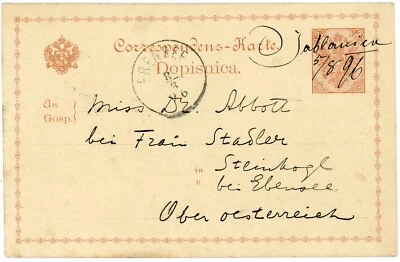 Correspondenz-Karte.
Dopisnica.
Jablanica
5/8 96
EBENSEE
An
Gosp.
Miss Dr. Abbott
bei Frau Stadler
in
u
Steinkogl
bei Ebensee
Ober oesterreich